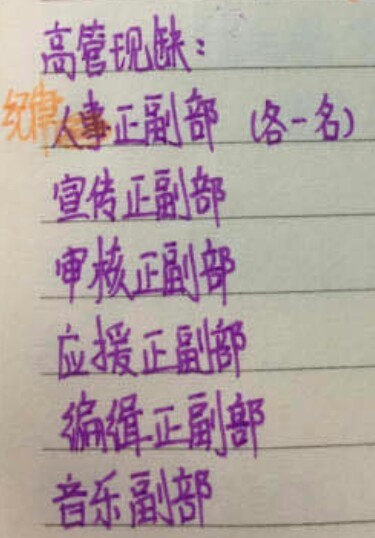 高管现缺：
纪律人事正副部（各一名）
宣传正副部
审核正副部
应援正副部
编缉正副部
音乐副部